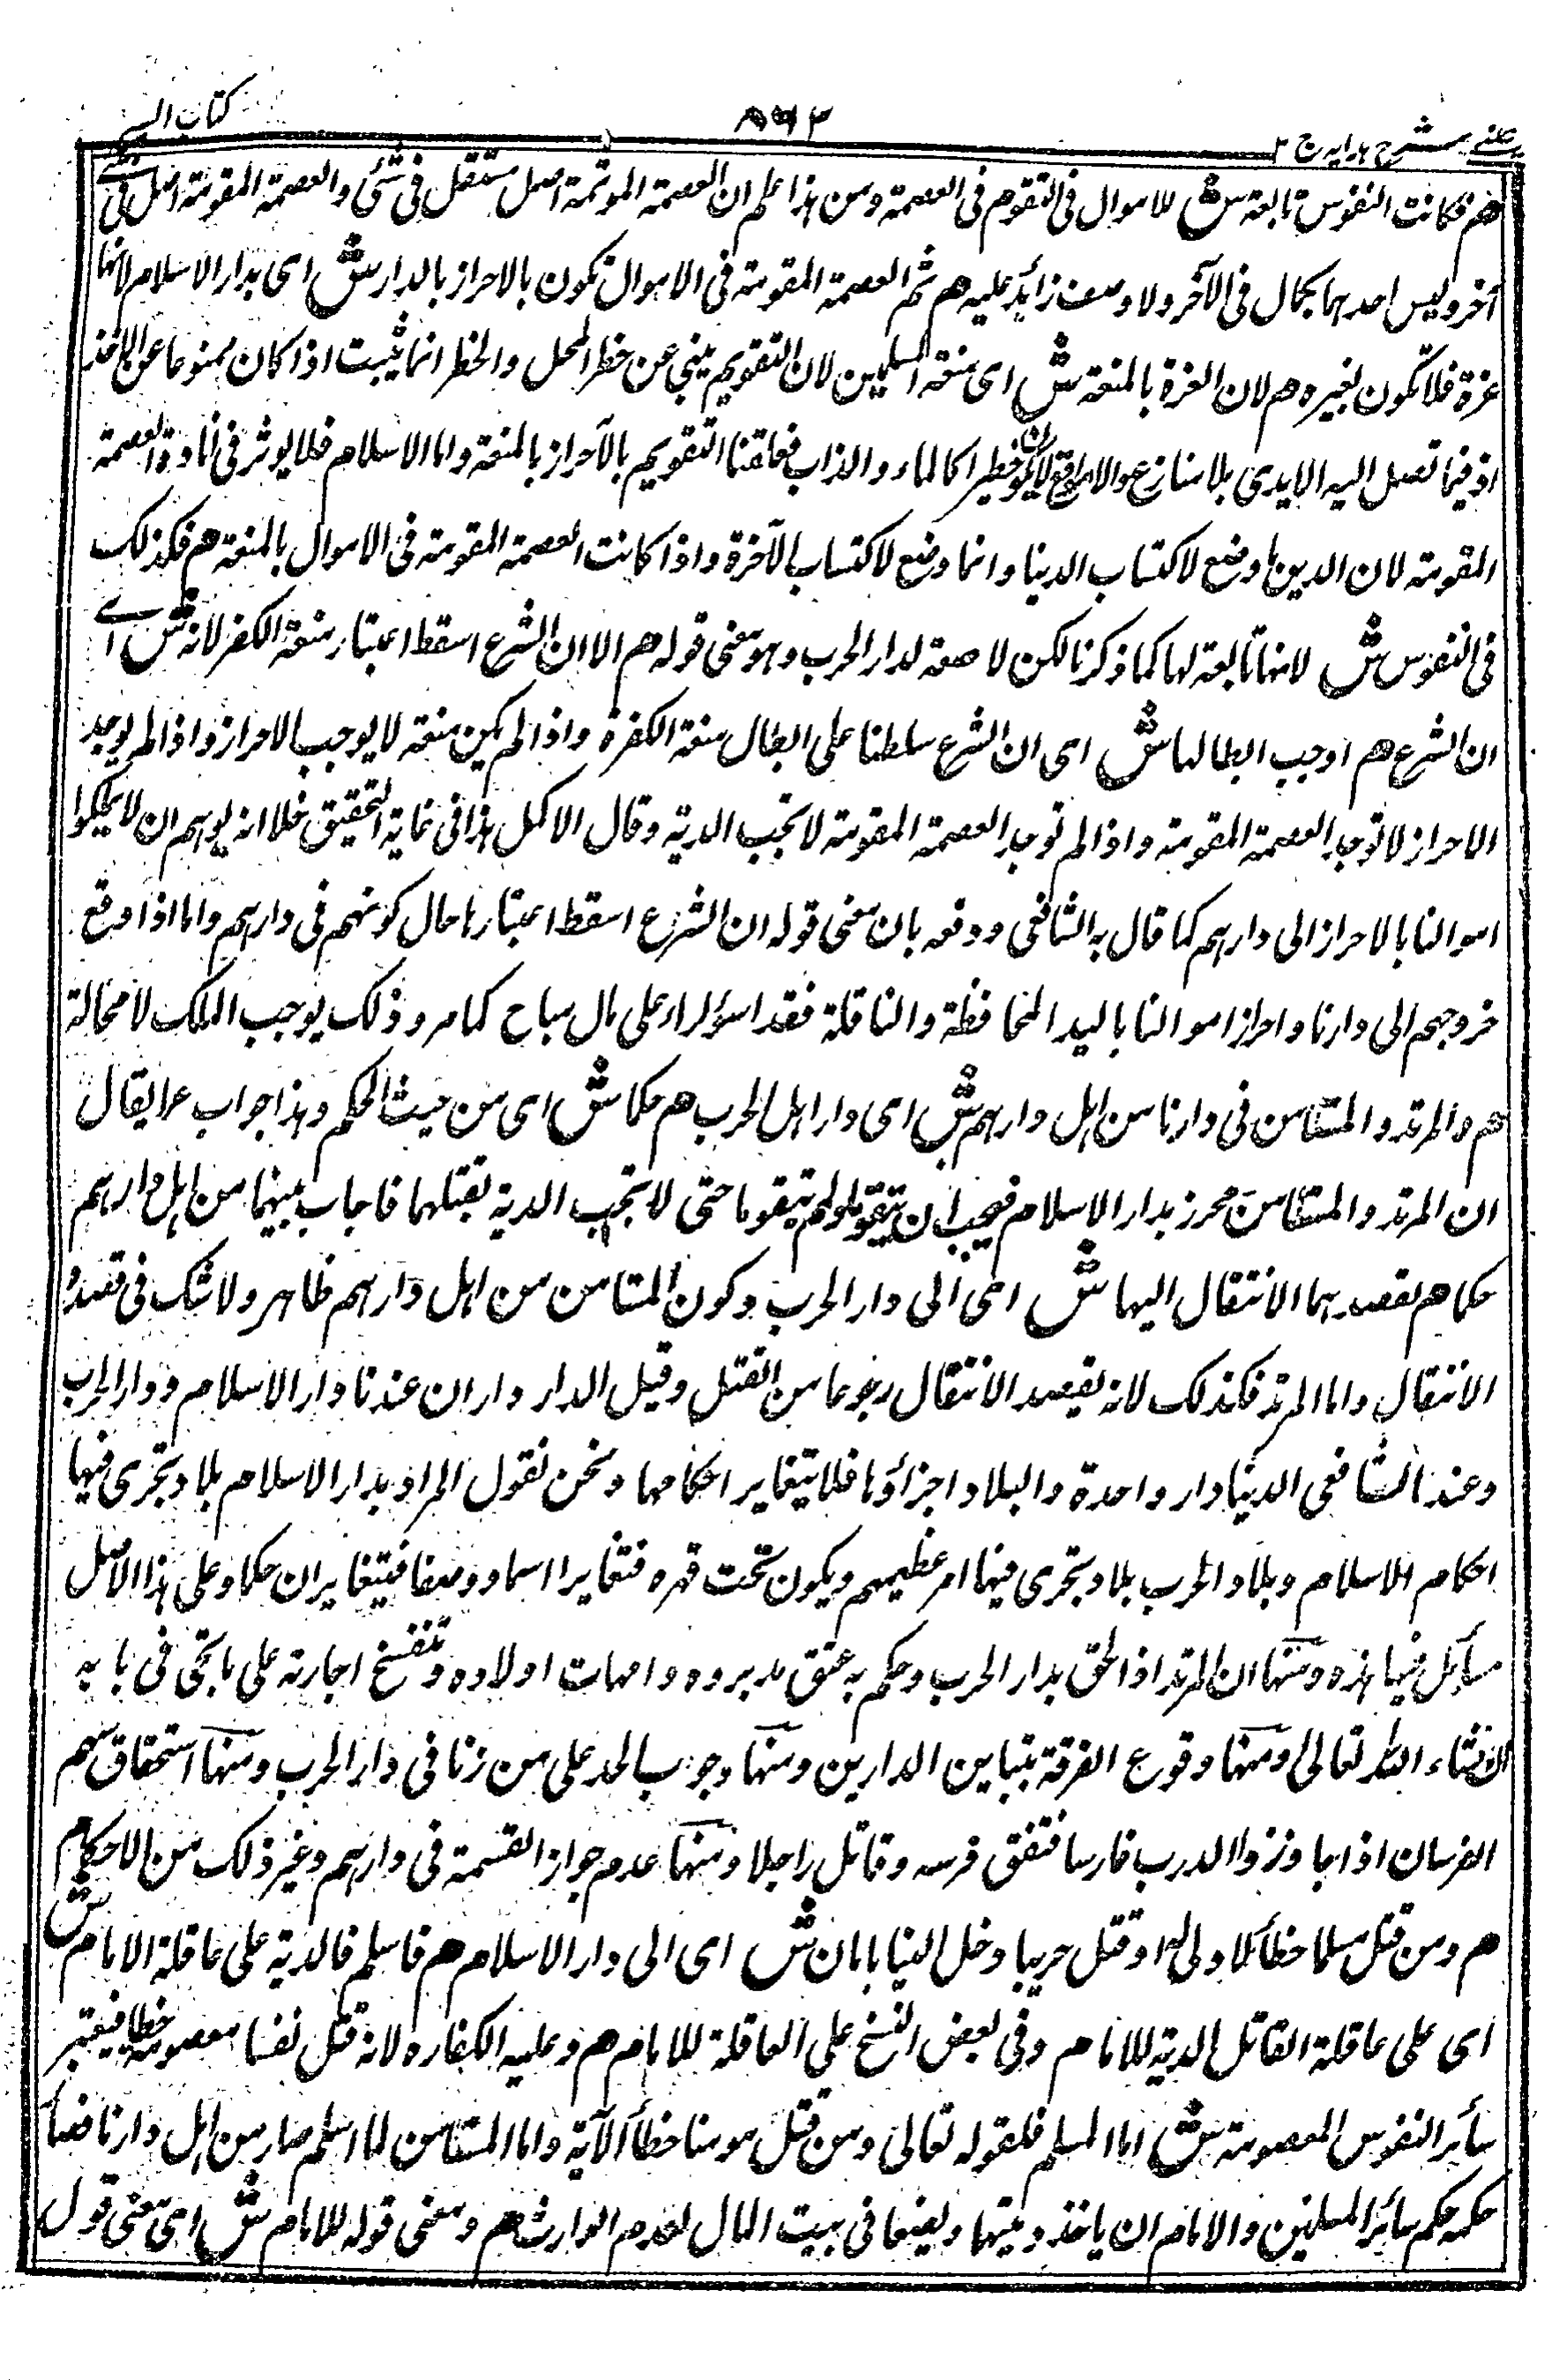 عينى شرح هدايه ج ٢
٨٩٣
كتاب السير
هم فكانت النفوس تابعة ش للاموال فى التقوم فى العصمة ومن هذا علم ان العصمة الموثمة اصل مستقل فى شئ والعصمة المقومة اصل فى
آخر وليس احدهما بكمال فى الآخر ولا وصف زائد عليه هم ثم العصمة المقومة فى الاموال تكون بالاحراز بالدار ش اى بدار الاسلام لانها
عزة فلا تكون لغيره هم لان العزة بالمنعة ش اى منعة المسلمين لان التقويم يبنى عن خطر المحل والخطر انما يثبت اذا كان ممنوعا عن الاخذ
اذ فيما تصل اليه الايدى بلا منازع خطيرا كالماء والتراب فعلقنا التقويم بالاحراز بالمنعة واما الاسلام فلا يوثر فى افادة العصمة
المقومة لان الدين ما وضع لاكتساب الدنيا وانما وضع لاكتساب الآخرة واذا كانت العصمة المقومة فى الاموال بالمنعة هم فكذلك
فى النفوس ش لانها تابعة لها كما ذكرنا لكن لا صعة لدار الحرب وهو معنى قوله هم الا ان الشرع اسقط اعتبار منعة الكفر لانه ش اے
ان الشرع هم اوجب ابطالها ش اى ان الشرع سلطنا على ابطال منعة الكفرة واذا لم يكن منعة لا يوجب الاحراز واذا لم يوجد
الاحراز لا توجد العصمة المقومة واذا لم توجد العصمة المقومة لا تجب الدية وقال الاكمل هذا فى غاية التحقيق خلا انه يوهم ان لا يملكوا
اموالنا بالاحراز الى دارهم كما قال به الشافعى ودفعه بان معنى قوله ان الشرع اسقط اعتبارها حال كونهم فى دارهم واما اذا وقع
خروجهم الى دارنا واحراز اموالنا باليد المحافظة والناقلة فقد استولوا على مال مباح كما مر وذلك يوجب الملك لا محالة
هم والمرتد والمستامن فى دارنا من اهل دارهم ش اى دار اهل الحرب هم حكما ش اى من حيث الحكم وهذا جواب عما يقال
ان المرتد والمستامن محرز بدار الاسلام فيجب ان يتقوما ولم يتقوما حتى لا تجب الدية بقتلهما فاجاب بينهما من اهل دارهم
حكما هم لقصدهما الانتقال اليها ش اى الى دار الحرب وكون المستامن من اهل دارهم ظاهر ولا شك فى قصده
الانتقال واما المرتد فكذلك لانه يقصد الانتقال رجوعا من القتل وقيل الدار داران عندنا دار الاسلام ودار الحرب
وعند الشافعى الدنيا دار واحدة والبلاد اجزاؤها فلا يتغاير احكامها ونحن نقول المراد بدار الاسلام بلاد تجرى فيها
احكام الاسلام وبلاد الحرب بلاد تجرى فيها امر عظيمهم ويكون تحت قهره فتغايرا اسما ووصفا فيتغايران حكما وعلى هذا الاصل
مسائل فيها هذه ومنها ان المرتد اذا لحق بدار الحرب وحكم به عتق مدبروه وامهات اولاده وتنفسخ اجارته على ما تجئ فى بابه
ان شاء الله تعالى ومنها وقوع الفرقة بتباين الدارين ومنها وجوب الحد على من زنا فى دار الحرب ومنها استحقاق سهم
الفرسان اذا جاوز والدرب فارسا فنفق فرسه وقاتل راجلا ومنها عدم جواز القسمة فى دارهم وغير ذلك من الاحكام
هم ومن قتل مسلما خطأ لا ولى له او قتل حربيا دخل الينا بامان ش اى الى دار الاسلام هم فاسلم فالدية على عاقلة الامام ش
اى على عاقلة القاتل الدية للامام وفى بعض النسخ على العاقلة للامام هم وعليه الكفاره لانه قتل نفسا معصومة خطأ فيعتبر
سائر النفوس المعصومة ش اما المسلم فلقوله تعالى ومن قتل مومنا خطأ الآية واما المستامن لما اسلم صار من اهل دارنا فصار
حكمه حكم سائر المسلمين والامام ان ياخذ ديتهما ويضعها فى بيت المال لعدم الوارث هم ومعنى قوله للامام ش اى معنى قول